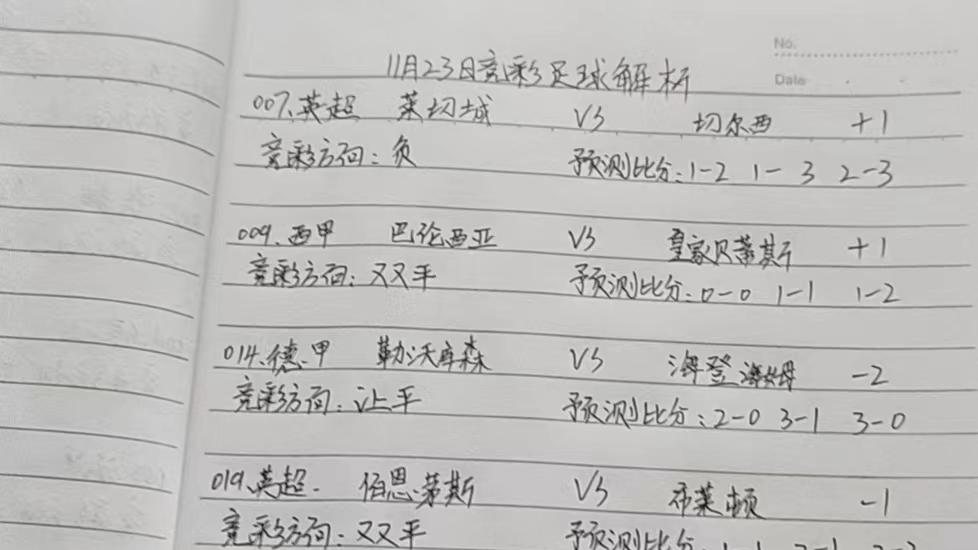 No.
11月23日竞彩足球解析
Date
007.英超 莱切城 VS 切尔西 +1
竞彩方向：负 预测比分：1-2 1-3 2-3
009.西甲 巴伦西亚 VS 皇家贝蒂斯 +1
竞彩方向：双平 预测比分：0-0 1-1 1-2
014.德.甲 勒沃库森 VS 海登海姆 -2
竞彩方向：让平 预测比分：2-0 3-1 3-0
019.英超. 伯恩茅斯 VS 布莱顿 -1
竞彩方向：双平 预测比分：